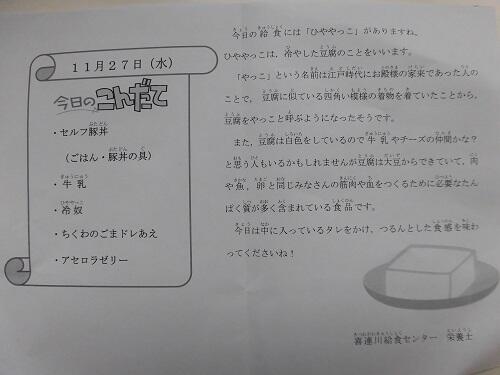 11月27日(水)
今日のこんだて
・セルフ豚丼
(ごはん・豚丼の具)
・牛乳
・冷奴
・ちくわのごまドレあえ
・アセロラゼリー
今日の給食には「ひややっこ」がありますね。
ひややっこは、冷やした豆腐のことをいいます。
「やっこ」という名前は江戸時代にお殿様の家来であった人の
ことで、豆腐に似ている四角い模様の着物を着ていたことから、
豆腐をやっこと呼ぶようになったそうです。
また、豆腐は白色をしているので牛乳やチーズの仲間かな?
と思う人もいるかもしれませんが豆腐は大豆からできていて、肉
や魚、卵と同じみなさんの筋肉や血をつくるために必要なたん
ぱく質が多く含まれている食品です。
今日は中に入っているタレをかけ、つるんとした食感を味わ
ってくださいね!
喜連川給食センター 栄養士